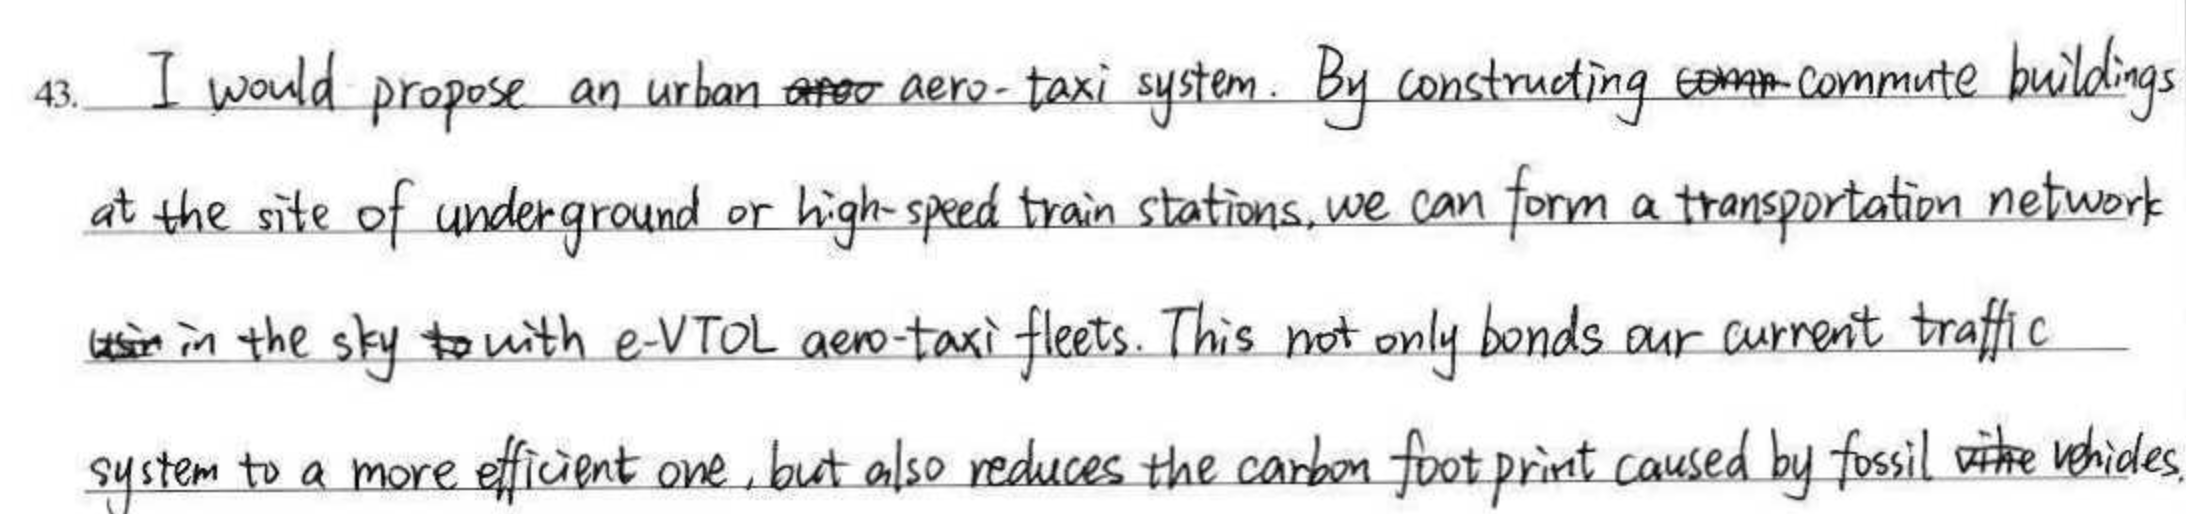 43. I would propose an urban aero-taxi system. By constructing commute buildings
at the site of underground or high-speed train stations, we can form a transportation network
in the sky with e-VTOL aero-taxi fleets. This not only bonds our current traffic
system to a more efficient one, but also reduces the carbon footprint caused by fossil vehicles.